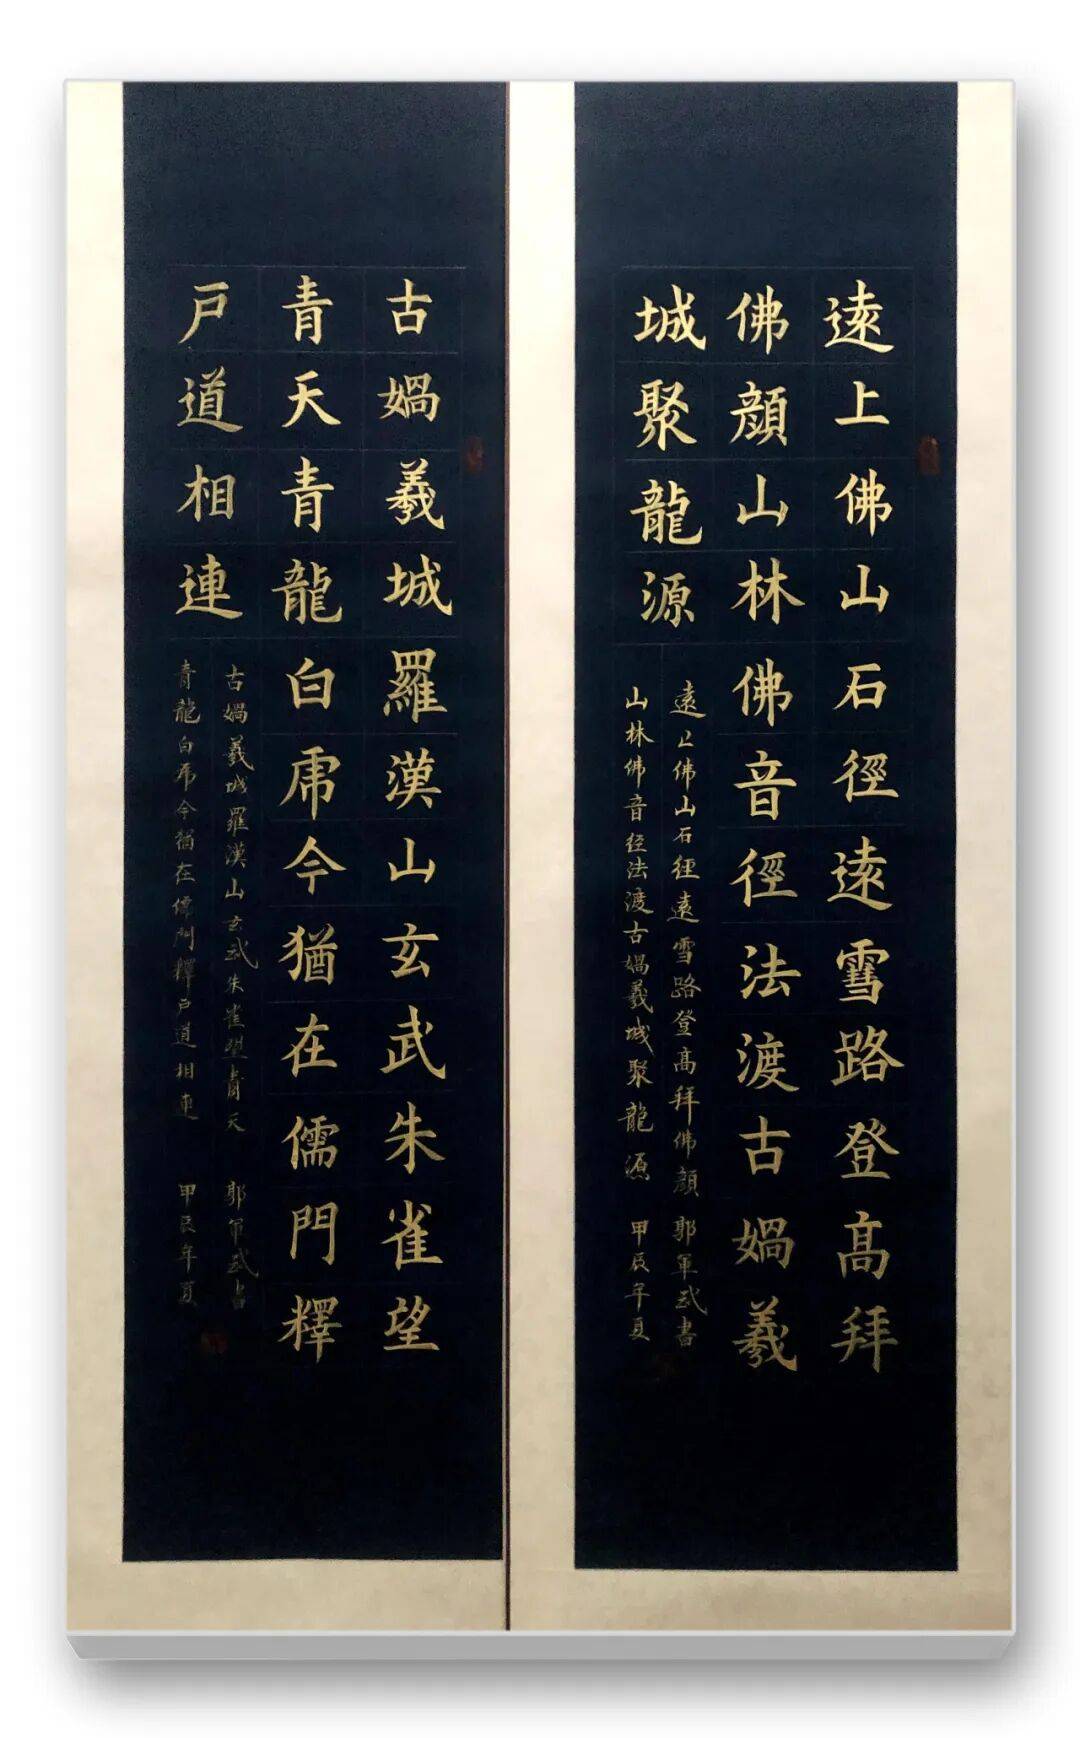 遠上佛山石徑遠雪路登高拜
佛顔山林佛音徑法渡古媧羲
城聚龍源
遠上佛山石徑遠雪路登高拜佛顔 郭軍武書
山林佛音徑法渡古媧羲城聚龍源 甲辰年夏
古媧羲城羅漢山玄武朱雀望
青天青龍白虎今猶在儒門釋
戸道相連
古媧羲城羅漢山玄武朱雀望青天 郭軍武書
青龍白虎今猶在儒門釋戸道相連 甲辰年夏